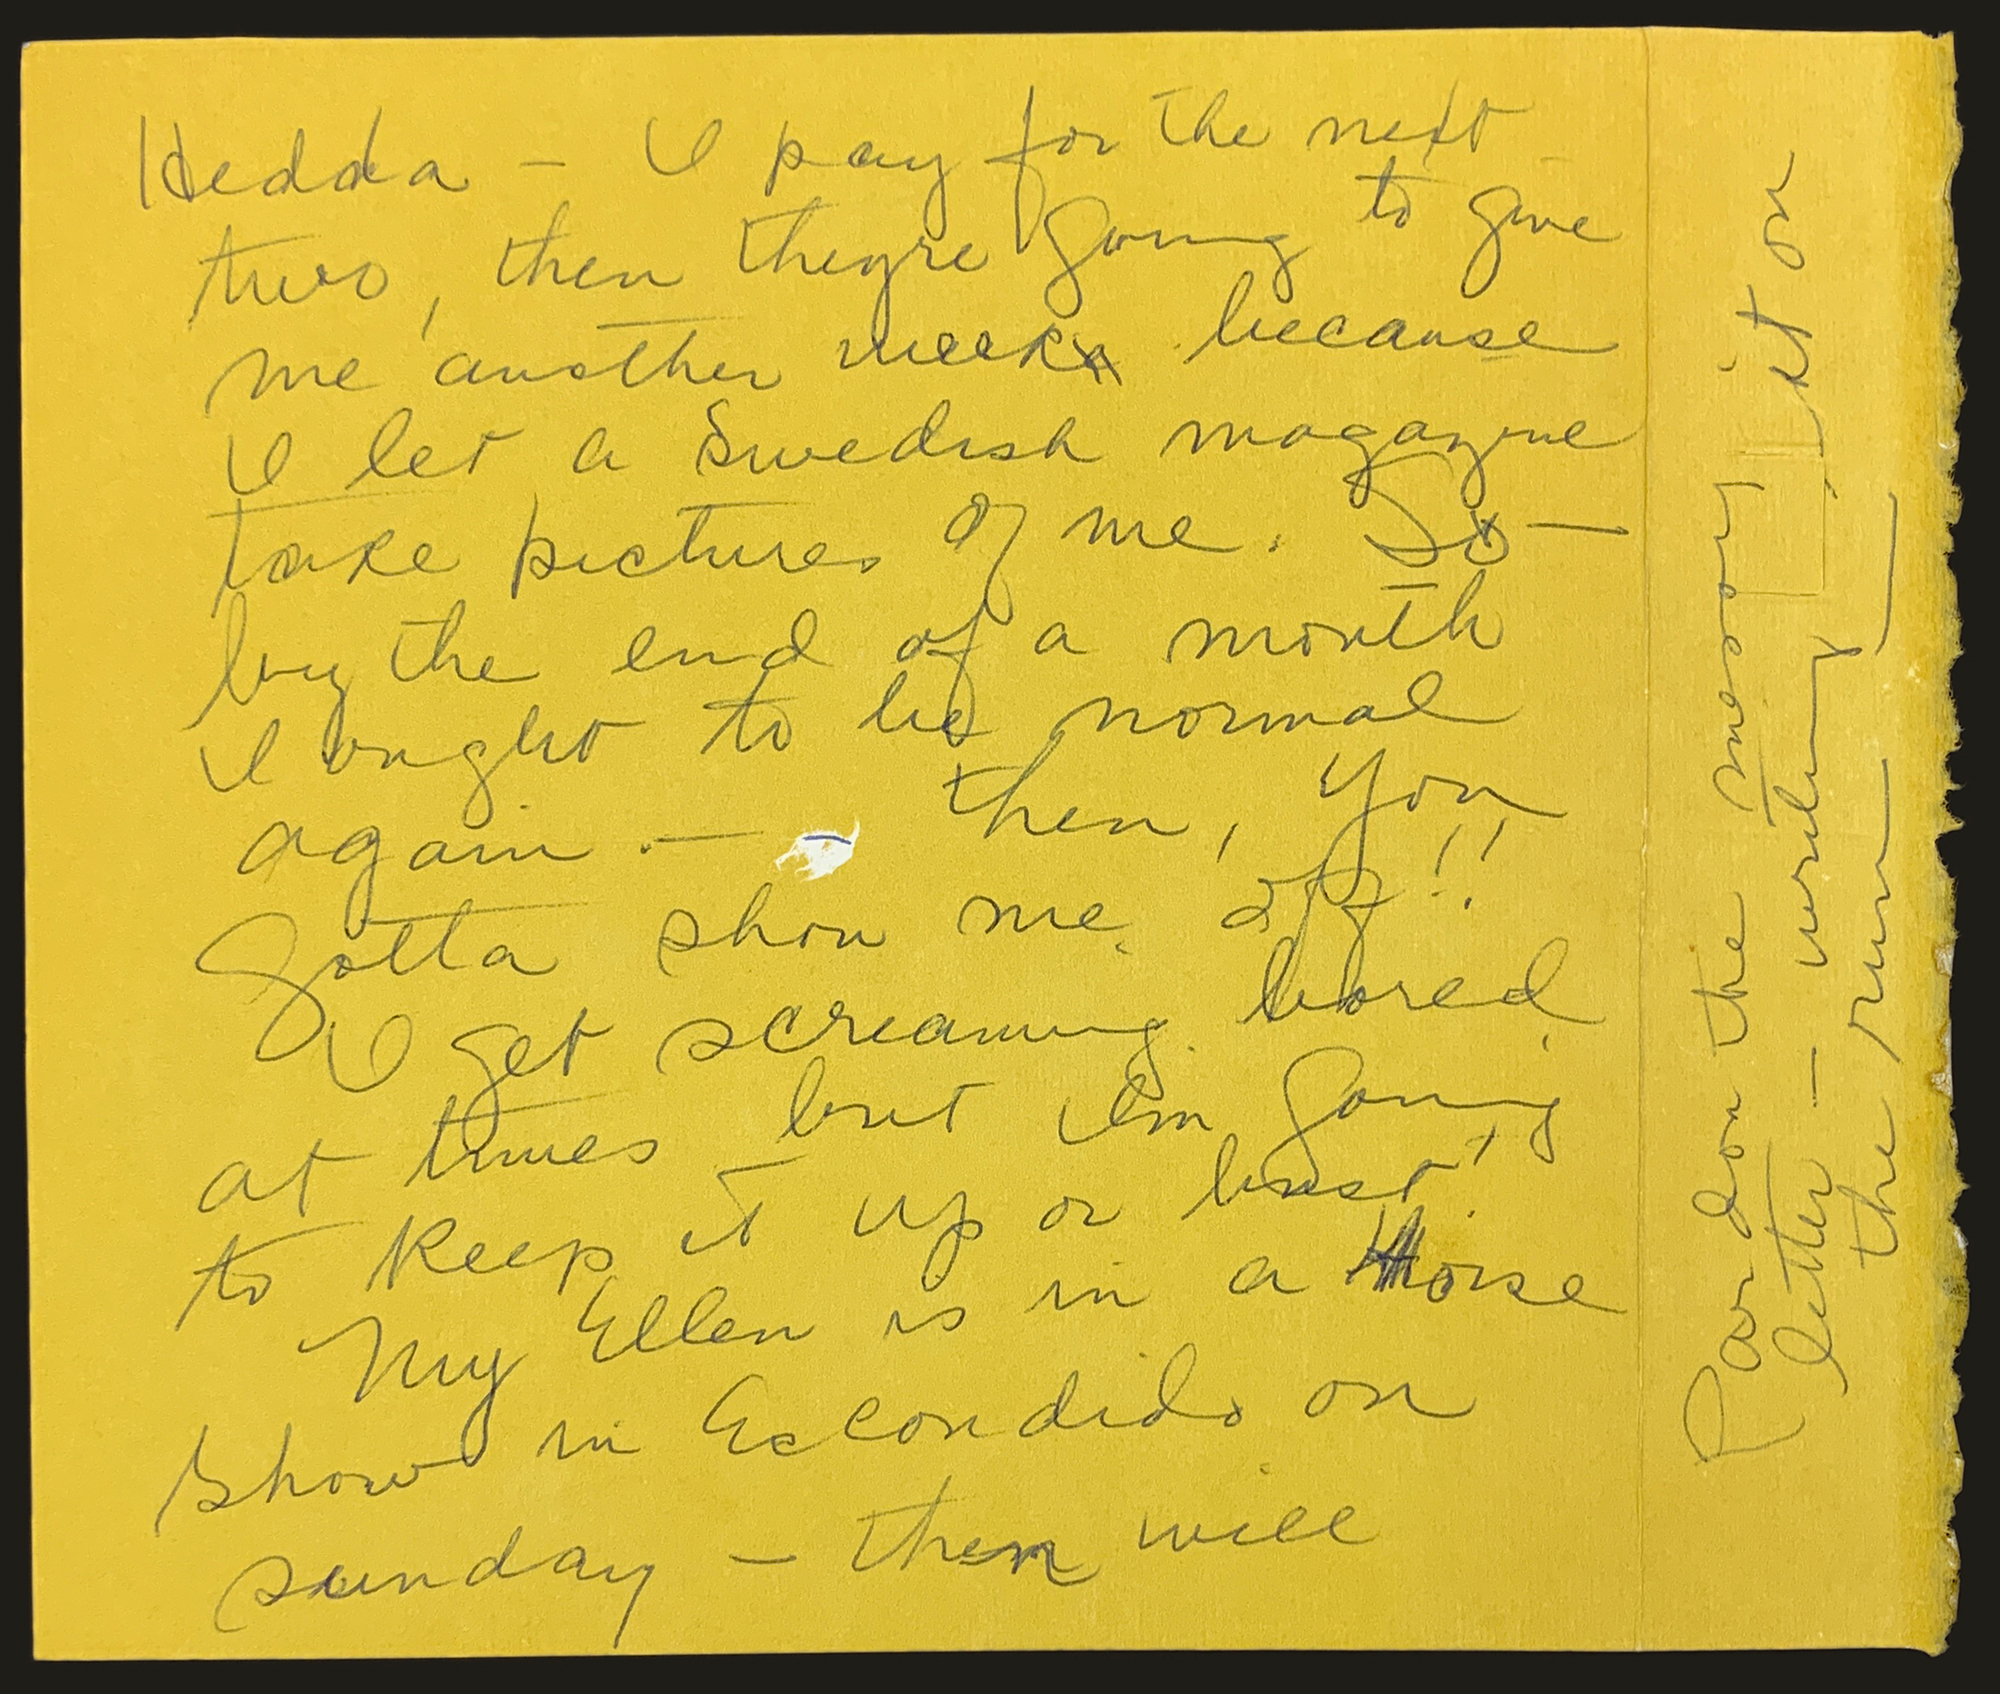 Hedda – I pay for the next
two, then theyre going to give
me another week because
I let a Swedish magazine
take pictures of me. So –
by the end of a month
I ought to be normal
again. — – then, you
gotta show me off!!
I get screaming bored
at times but I'm going
to keep it up or bust!
My Ellen is in a Horse
show in Escondido on
sunday – then will
Pardon the messy
letter – writing it on
the run —